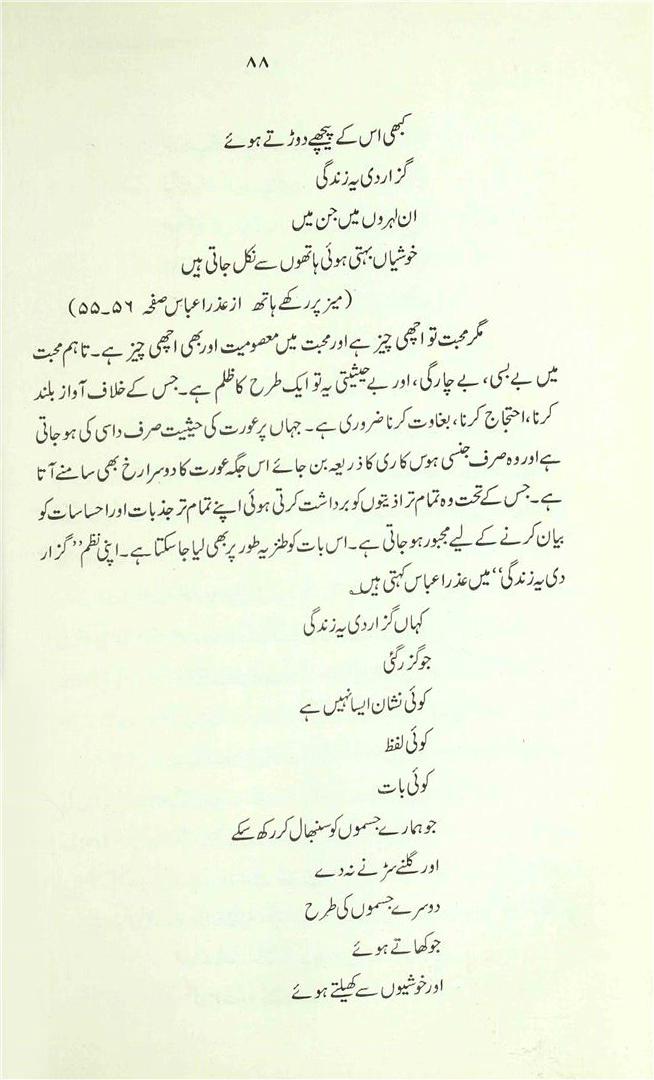 ۸۸
کبھی اس کے پیچھے دوڑتے ہوئے
گزار دی یہ زندگی
ان لہروں میں جن میں
خوشیاں بہتی ہوئی ہاتھوں سے نکل جاتی ہیں
(میز پر رکھے ہاتھ از عذرا عباس صفحہ ۵۶۔۵۵)
مگر محبت تو اچھی چیز ہے اور محبت میں معصومیت اور بھی اچھی چیز ہے۔ تاہم محبت
میں بے بسی، بے چارگی، اور بے حیثیتی یہ تو ایک طرح کا ظلم ہے۔ جس کے خلاف آواز بلند
کرنا، احتجاج کرنا، بغاوت کرنا ضروری ہے۔ جہاں پر عورت کی حیثیت صرف داسی کی ہو جاتی
ہے اور وہ صرف جنسی ہوس کاری کا ذریعہ بن جائے اس جگہ عورت کا دوسرا رخ بھی سامنے آتا
ہے۔ جس کے تحت وہ تمام تر اذیتوں کو برداشت کرتی ہوئی اپنے تمام تر جذبات اور احساسات کو
بیان کرنے کے لیے مجبور ہو جاتی ہے۔ اس بات کو طنزیہ طور پر بھی لیا جا سکتا ہے۔ اپنی نظم ’’گزار
دی یہ زندگی‘‘ میں عذرا عباس کہتی ہیں ؎
کہاں گزار دی یہ زندگی
جو گزر گئی
کوئی نشان ایسا نہیں ہے
کوئی لفظ
کوئی بات
جو ہمارے جسموں کو سنبھال کر رکھ سکے
اور گلنے سڑنے نہ دے
دوسرے جسموں کی طرح
جو کھاتے ہوئے
اور خوشیوں سے کھیلتے ہوئے